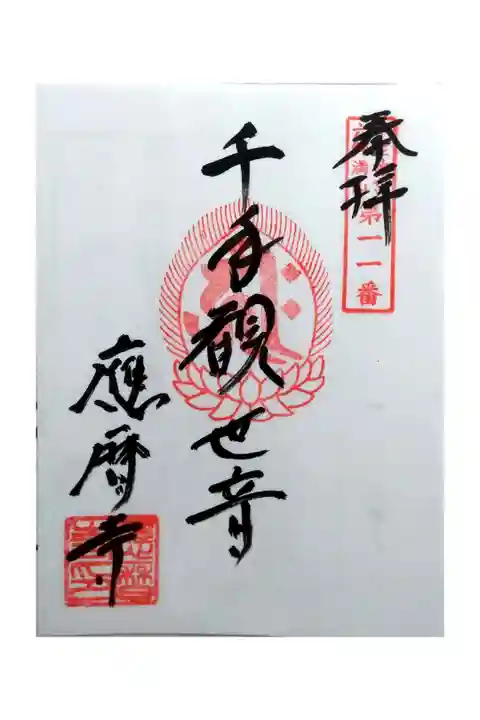 奉拝
第一一番
千手観世音
應暦寺